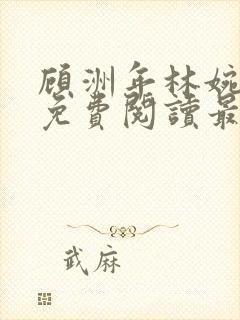 顾洲年林婉
免費閱讀最
武麻